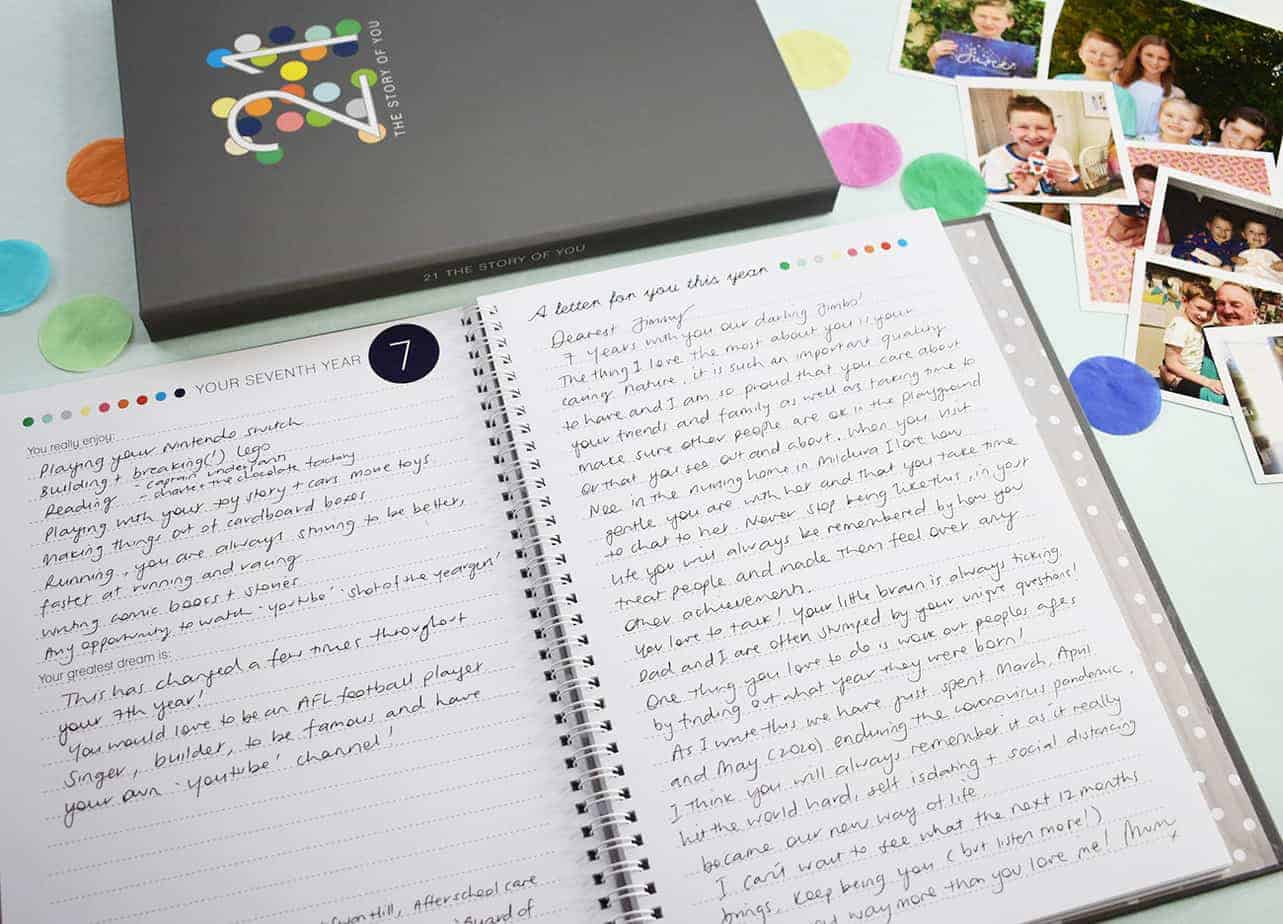 21
THE STORY OF YOU
21 THE STORY OF YOU
YOUR SEVENTH YEAR
7
You really enjoy:
Playing your Nintendo Switch
Building + breaking(!) Lego
Reading - captain underpants
- charlie + the chocolate factory
Playing with your toy story + cars movie toys
Making things out of cardboard boxes
Running, you are always striving to be better,
faster at running and racing
Writing comic books + stories
Any opportunity to watch 'youtube'
Your greatest dream is:
This has changed a few times throughout
your 7th year!
You would love to be an AFL football player
Singer, builder, to be famous and have
your own 'youtube' channel!
Hill, After school care
A letter for you this year
Dearest Jimmy
7 years with you our darling Jimbo!
The thing I love the most about you is your
caring nature, it is such an important quality
to have and I am so proud that you care about
your friends and family as well as taking time to
make sure other people are ok in the playground
or that you see out and about. When you visit
Nee in the nursing home in Mildura I love how
gentle you are with her and that you take time
to chat to her. Never stop being like this, in your
life you will always be remembered by how you
treat people and made them feel over any
other achievement.
You love to talk! Your little brain is always ticking.
Dad and I are often stumped by your unique questions!
One thing you love to do is work out peoples ages
by finding out what year they were born!
As I write this we have just spent March, April
and May (2020) enduring the coronavirus pandemic.
I think you will always remember it as it really
hit the world hard, self isolating + social distancing
became our new way of life.
I can't wait to see what the next 12 months
brings, keep being you (but listen more!)
way more than you love me! Mum
x